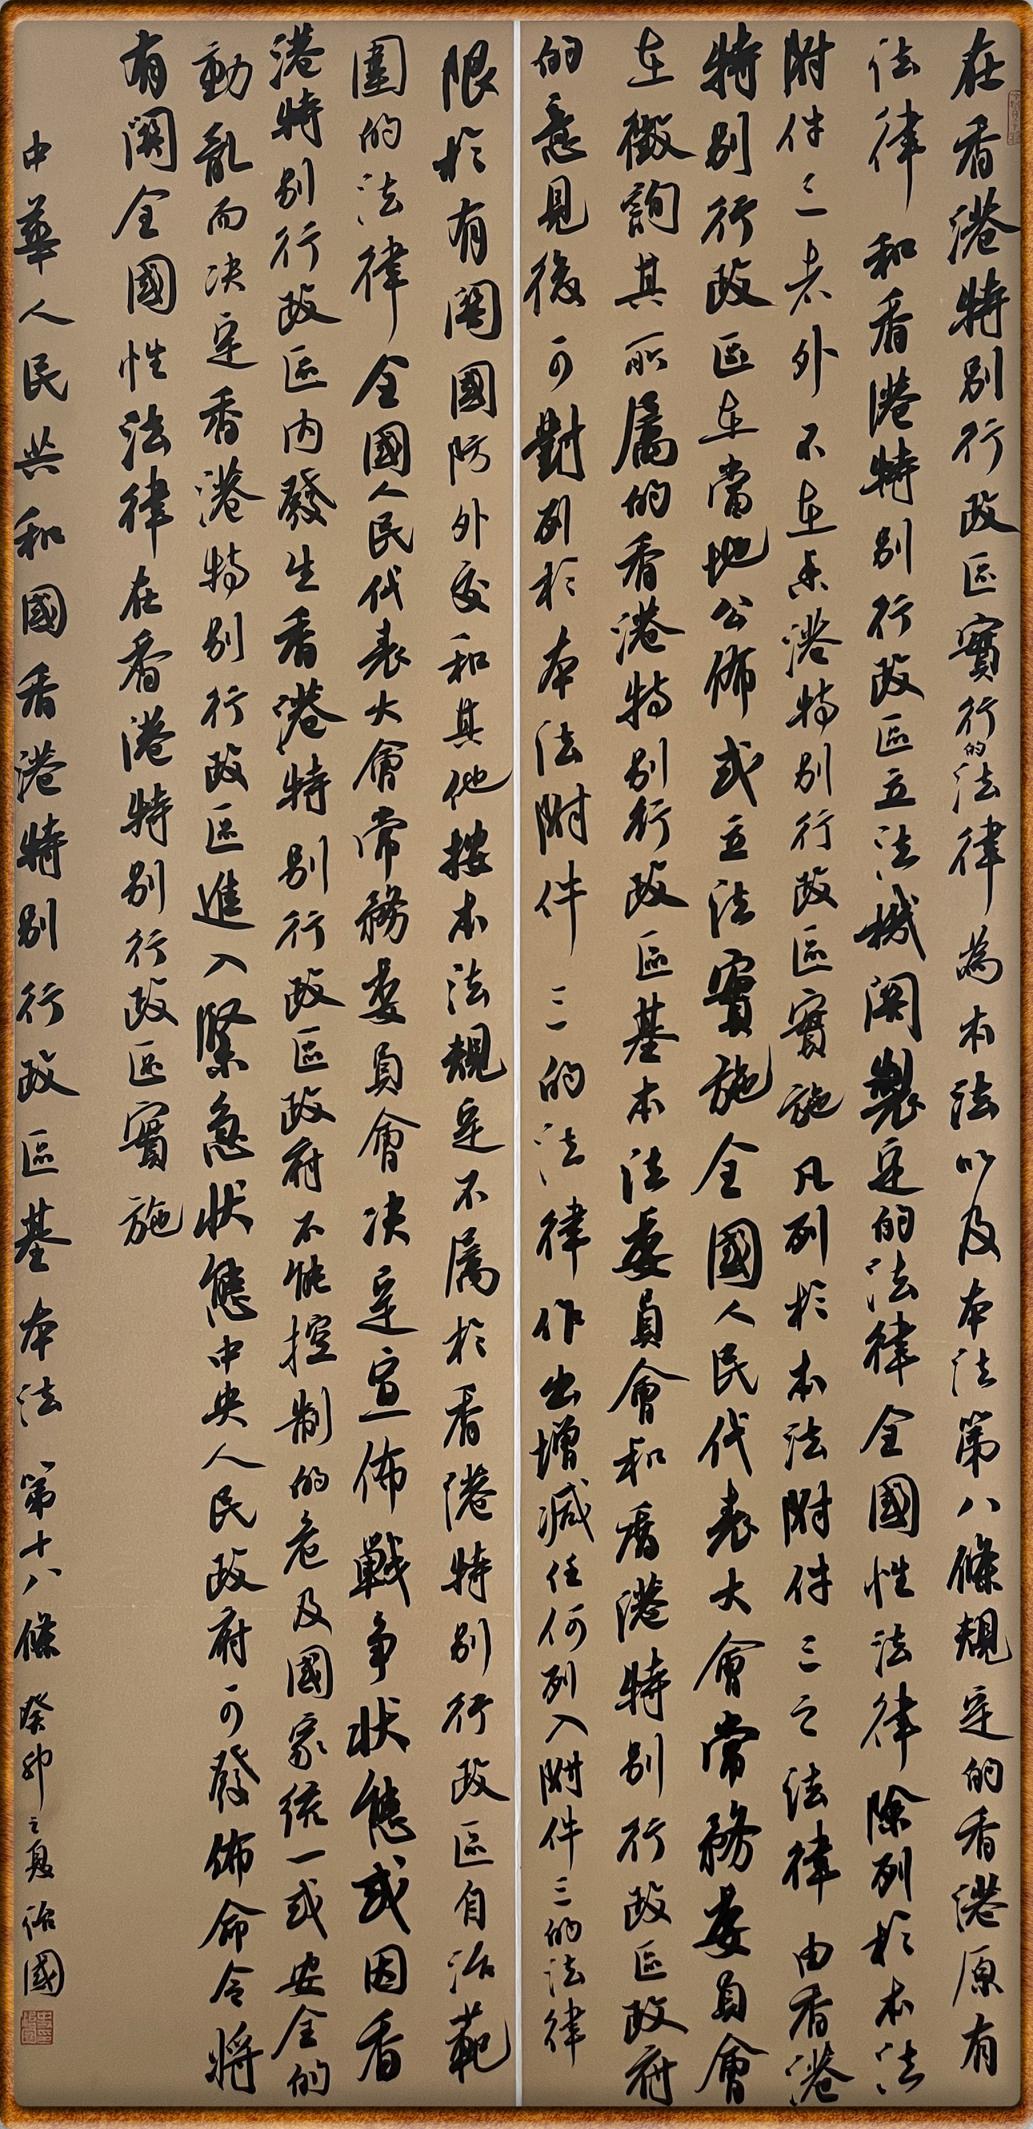 在香港特別行政區實行的法律為本法以及本法第八條規定的香港原有
法律和香港特別行政區立法機関製定的法律全國性法律除列於本法
附件三者外不在香港特別行政區實施凡列於本法附件三之法律由香港
特別行政區在當地公佈或立法實施全國人民代表大會常務委員會
在徵詢其所屬的香港特別行政區基本法委員會和香港特別行政區政府
的意見後可對列於本法附件三的法律作出增減任何列入附件三的法律
限於有関國防外交和其他按本法規定不屬於香港特別行政區自治範
圍的法律全國人民代表大會常務委員會決定宣佈戰爭狀態或因香
港特別行政區內發生香港特別行政區政府不能控制的危及國家統一或安全的
動亂而決定香港特別行政區進入緊急狀態中央人民政府可發佈命令將
有関全國性法律在香港特別行政區實施
中華人民共和國香港特別行政區基本法第十八條 癸卯之夏治國